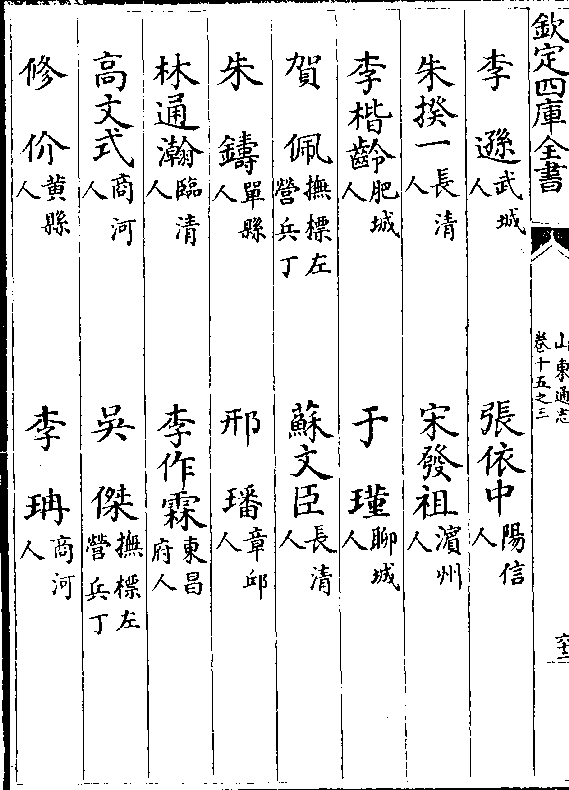 欽定四庫全書
山東通志
卷十五之三
李遜武城人
張依中陽信人
朱揆一長清人
宋發祖濱州人
李楷齡肥城人
于瑾聊城人
賀佩撫標左營兵丁
蘇文臣長清人
朱鑄單縣人
邢璠章邱人
林通瀚臨清人
李作霖東昌府人
高文式商河人
吳傑撫標左營兵丁
修价黄縣人
李珃商河人